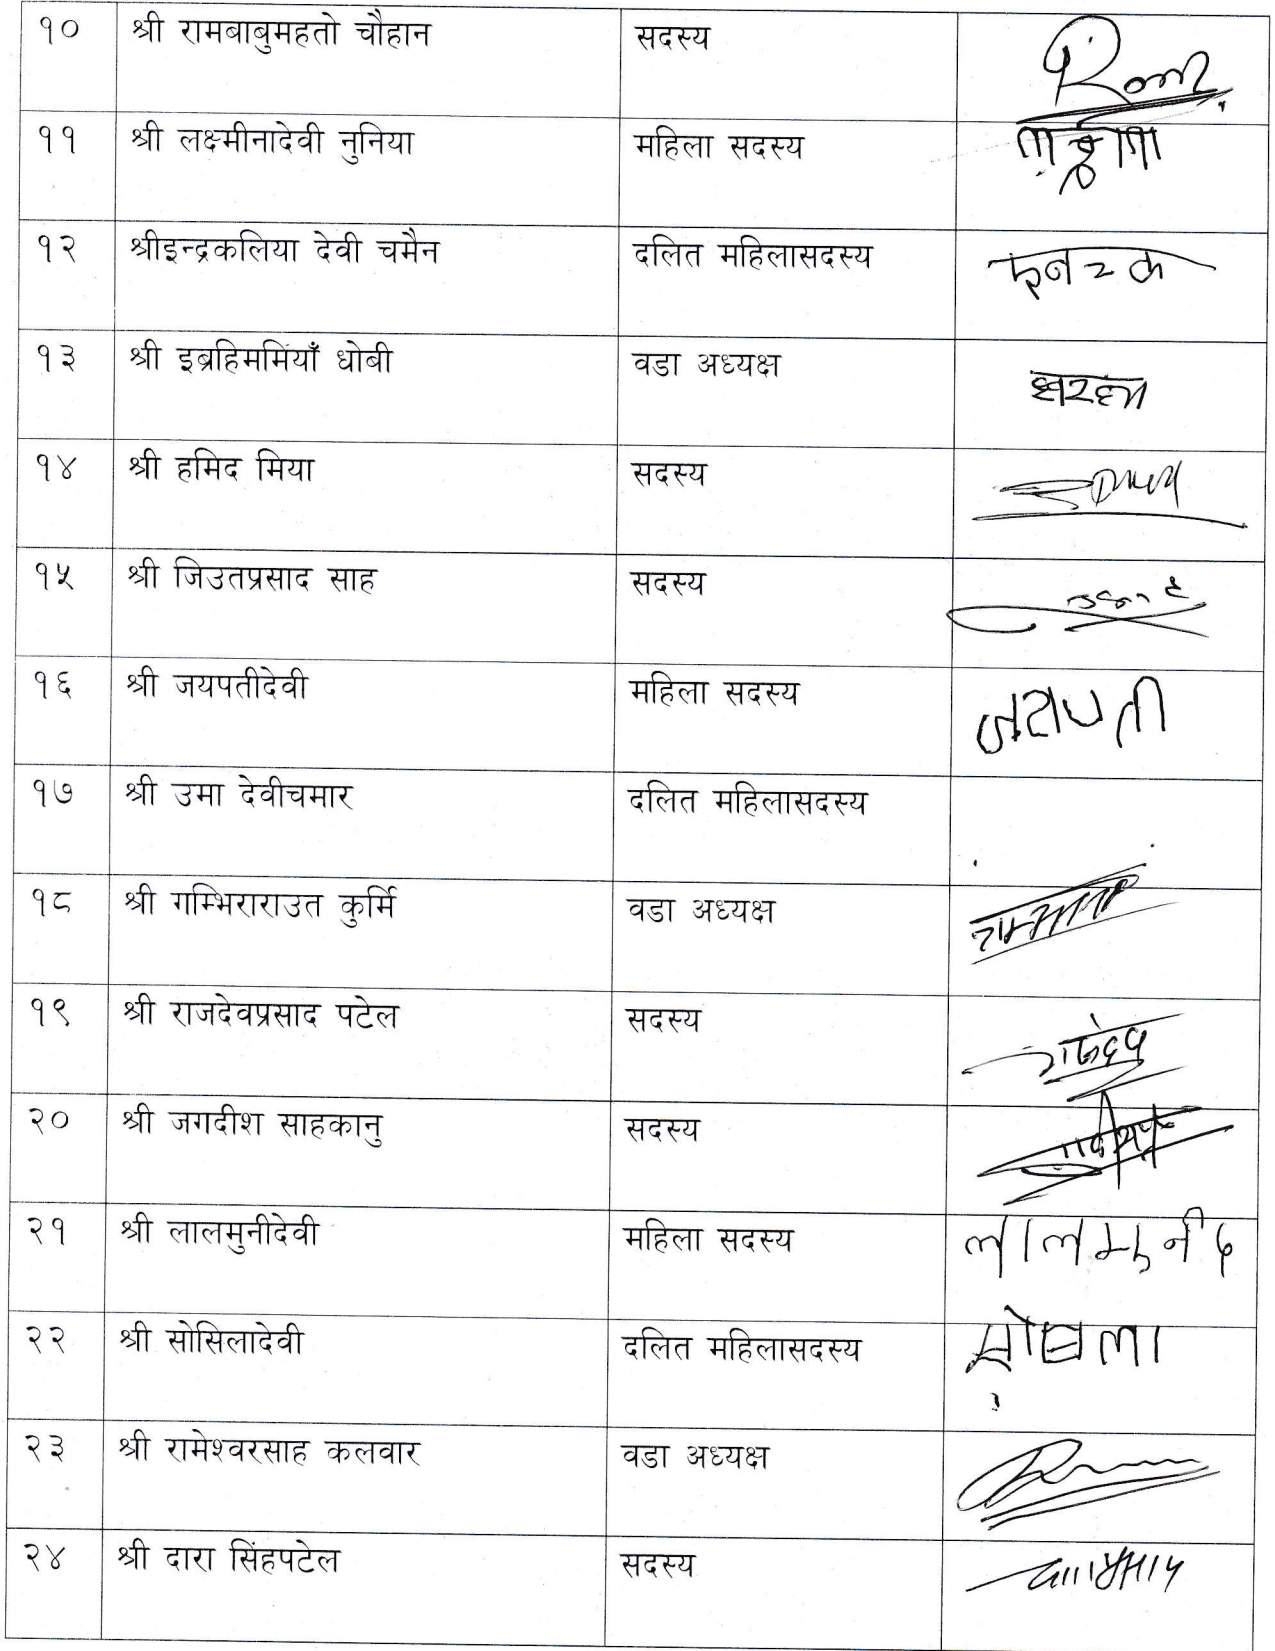 १० श्री रामबाबुमहतो चौहान सदस्य
११ श्री लक्ष्मीनादेवी नुनिया महिला सदस्य
१२ श्रीइन्द्रकलिया देवी चमैन दलित महिलासदस्य
१३ श्री इब्रहिममियाँ धोबी वडा अध्यक्ष
१४ श्री हमिद मिया सदस्य
१५ श्री जिउतप्रसाद साह सदस्य
१६ श्री जयपतीदेवी महिला सदस्य जयपती
१७ श्री उमा देवीचमार दलित महिलासदस्य
१८ श्री गम्भिराराउत कुर्मि वडा अध्यक्ष
१९ श्री राजदेवप्रसाद पटेल सदस्य
२० श्री जगदीश साहकानु सदस्य
२१ श्री लालमुनीदेवी महिला सदस्य लालमुनीद
२२ श्री सोसिलादेवी दलित महिलासदस्य
२३ श्री रामेश्वरसाह कलवार वडा अध्यक्ष
२४ श्री दारा सिंहपटेल सदस्य